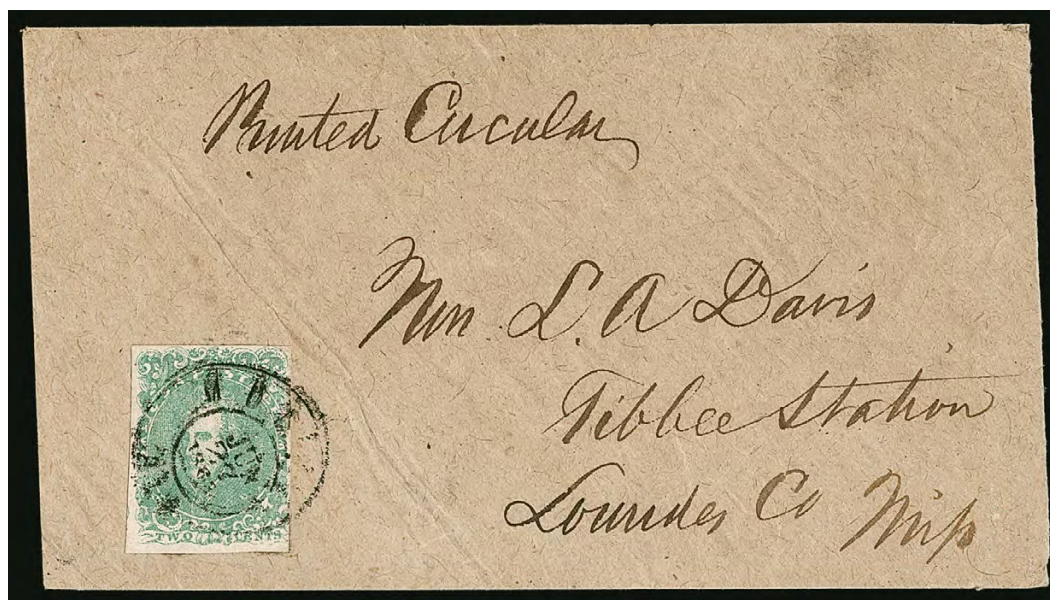 Printed Circular
L. A Davis
Tibbee Station
Lowndes Co Miss
TWO CENTS